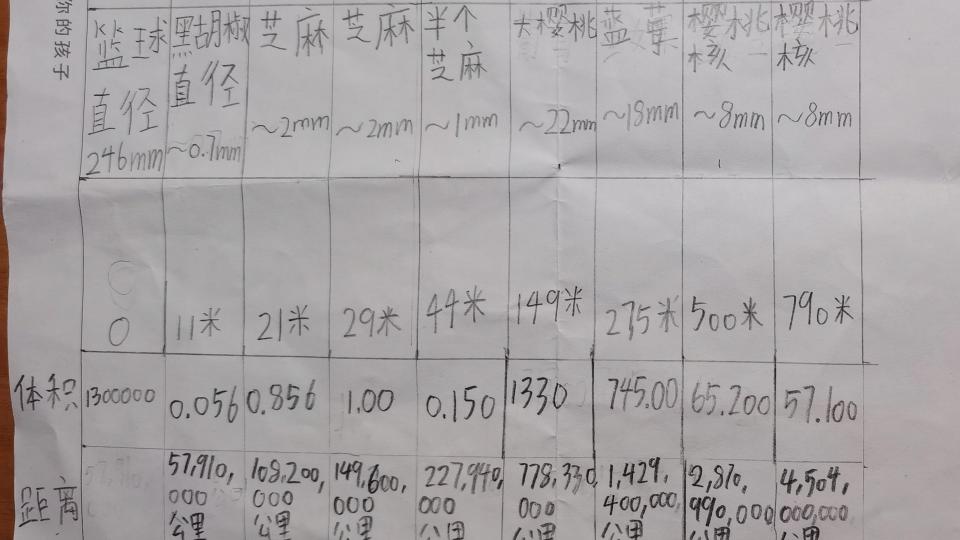 你的孩子
监球 黑胡椒 芝麻 芝麻 半个 大樱桃 蓝莓 樱桃 樱桃
直径 芝麻 核 核
直径 ~2mm ~2mm ~1mm ~22mm ~18mm ~8mm ~8mm
246mm ~0.7mm
0 11米 21米 29米 44米 149米 275米 500米 790米
体积 1300000 0.056 0.856 1.00 0.150 1330 745.00 65.200 57.100
距离 57,910, 108,200, 149,600, 227,940, 778,330, 1,429, 2,870, 4,504,
000 000 000 000 000 400,000, 990,000 000,000
公里 公里 公里 公里 公里 公里 公里 公里